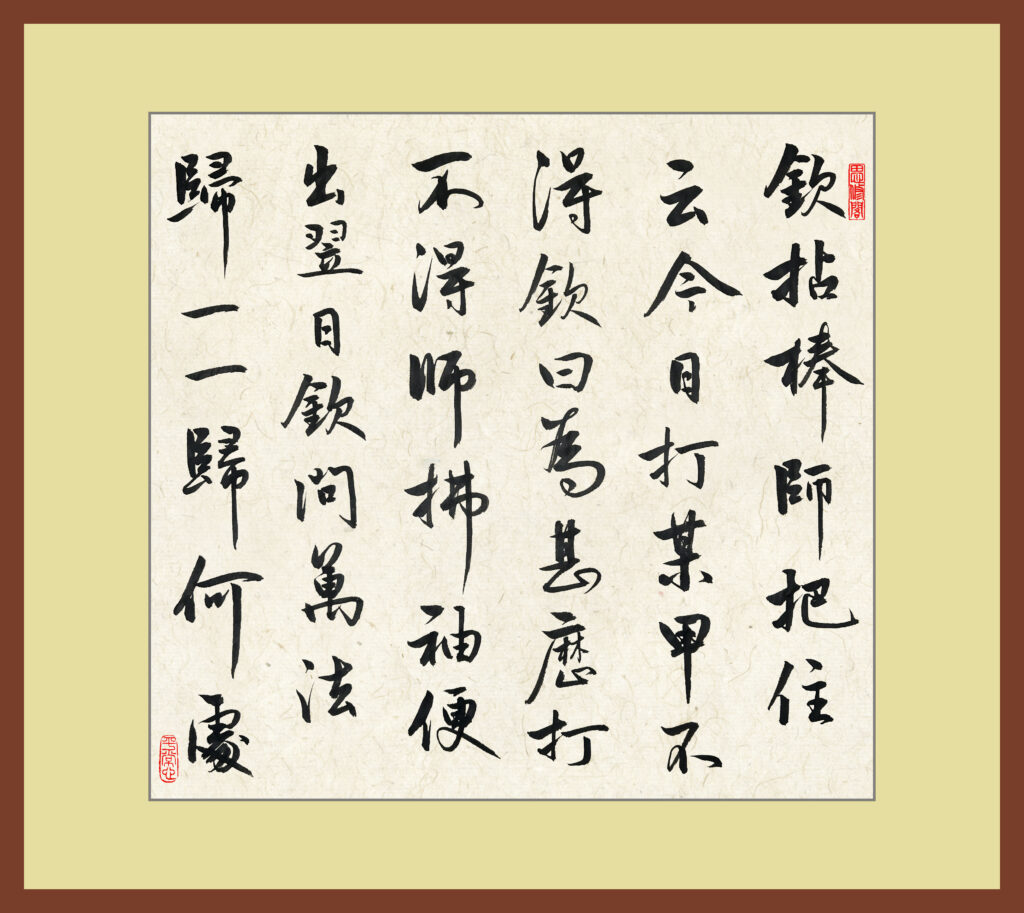 思修閣
欽拈棒師把住
云今日打某甲不
得欽曰為甚麼打
不得師拂袖便
出翌日欽問萬法
歸一一歸何處
平常心